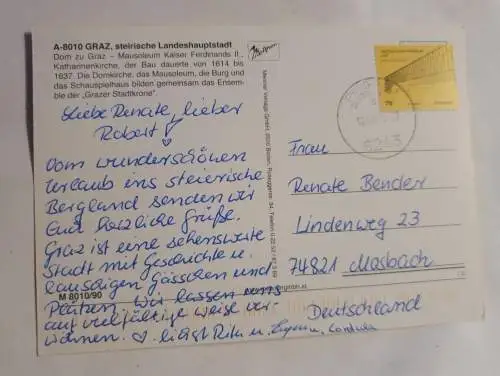 A-8010 GRAZ, steirische Landeshauptstadt
Dom zu Graz – Mausoleum Kaiser Ferdinands II.,
Katharinenkirche, der Bau dauerte von 1614 bis
1637. Die Domkirche, das Mausoleum, die Burg und
das Schauspielhaus bilden gemeinsam das Ensem-
ble der „Grazer Stadtkrone".
Liebe Renate, lieber
Robert!
Vom wunderschönen
Urlaub ins steierische
Bergland senden wir
Euch herzliche Grüße.
Graz ist eine sehenswerte
Stadt mit Geschichte u.
lauschigen Gässchen und
M 8010/90
Plätzen. Wir lassen uns
auf vielfältige Weise ver-
wöhnen. ♡ lichst Rita u.
Frau
Renate Bender
Lindenweg 23
74821 Mosbach
Deutschland